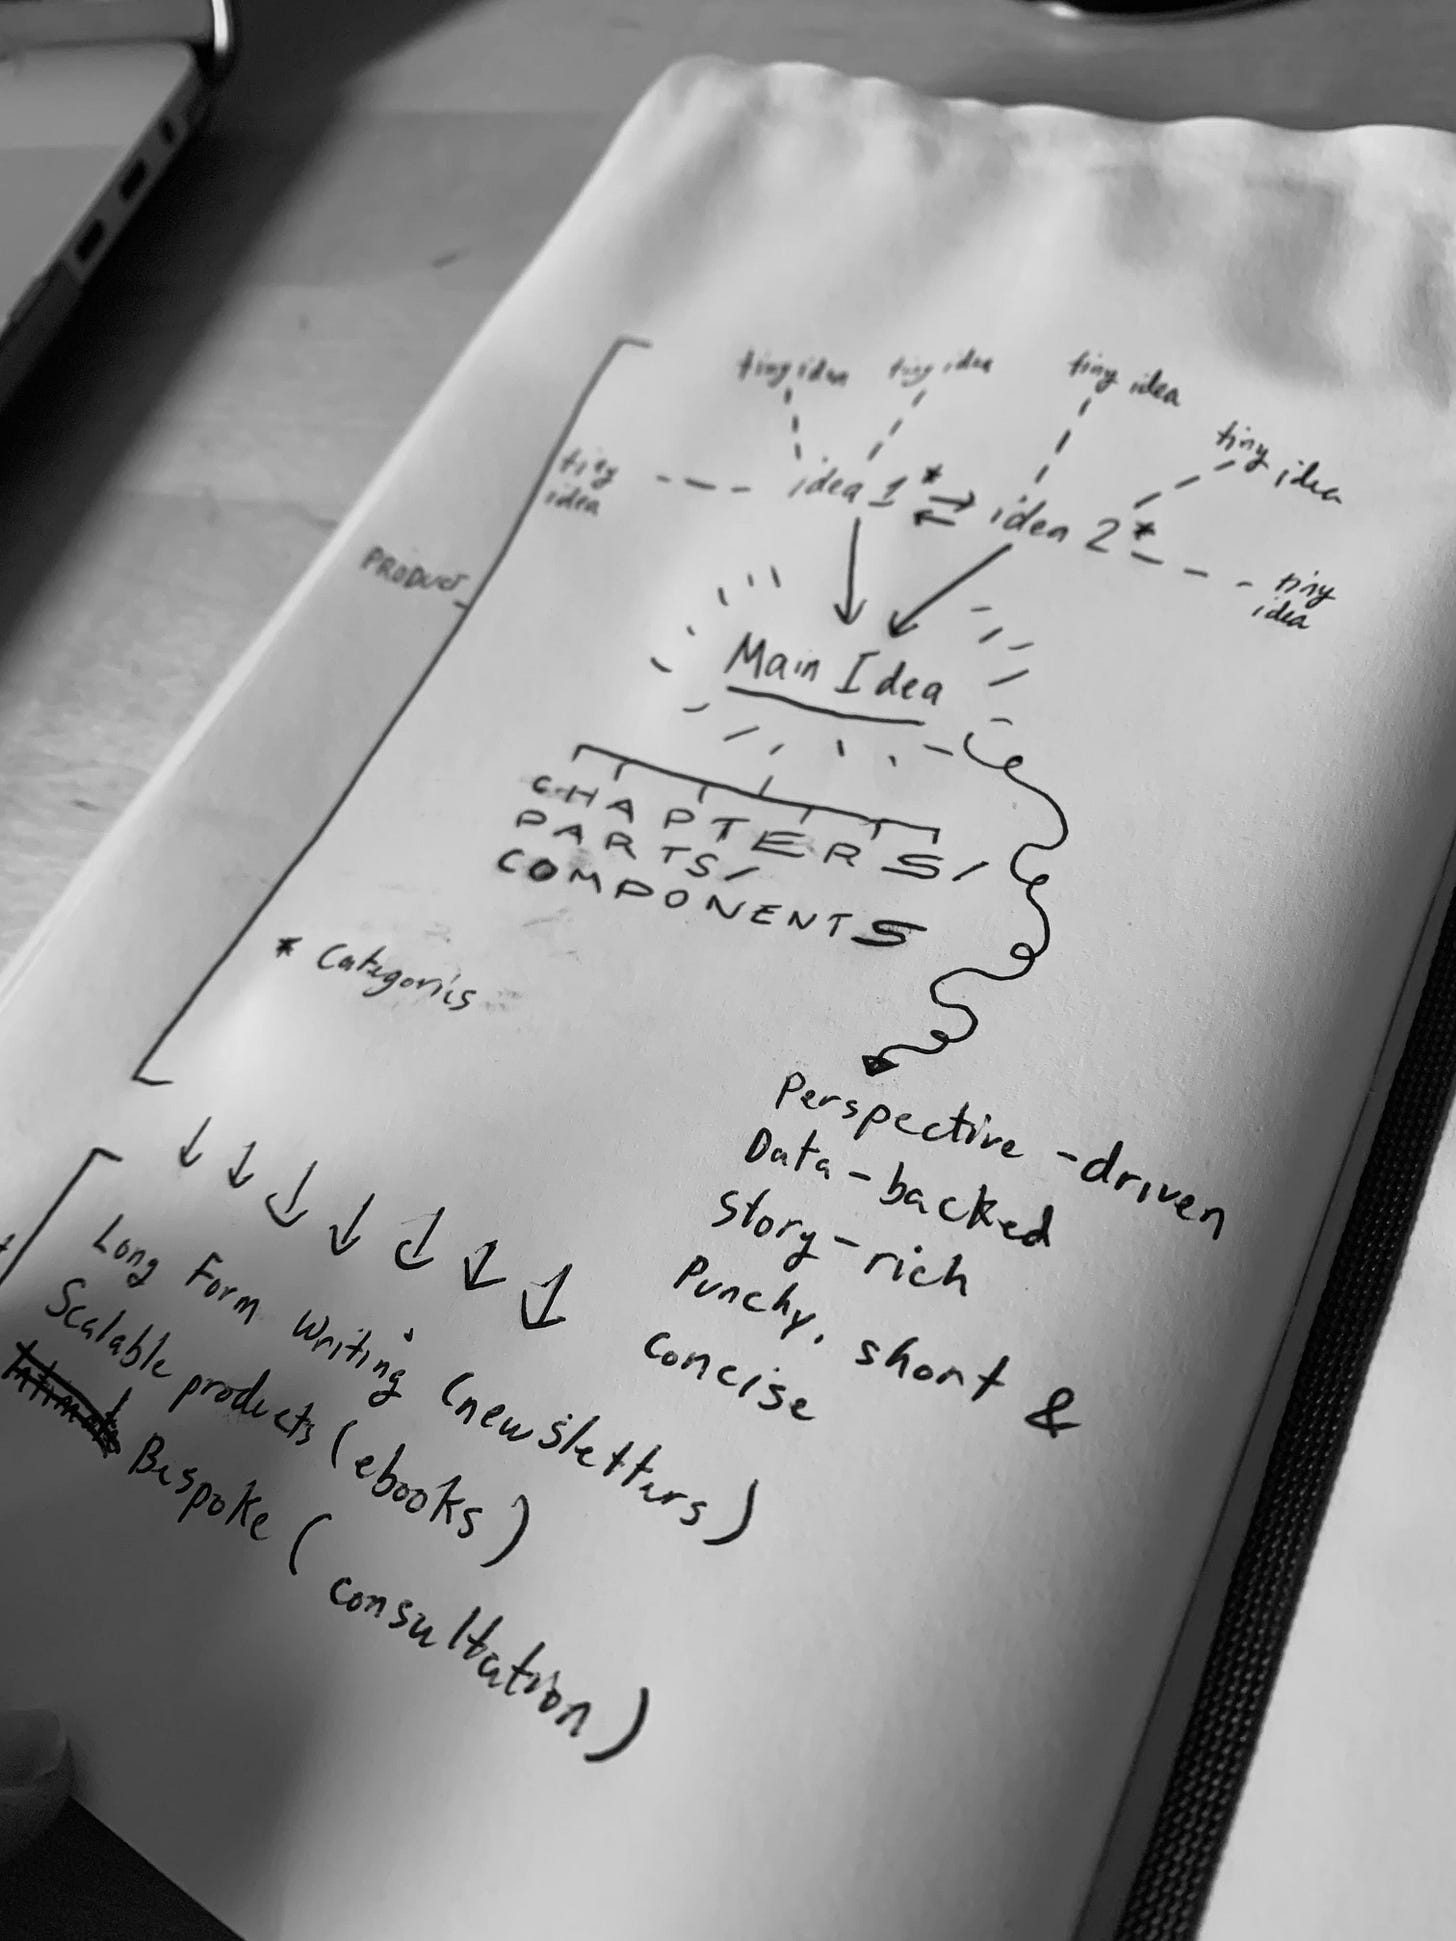 tiny idea
tiny idea
tiny idea
tiny idea
tiny
idea
idea 1* idea 2*
tiny
idea
PRODUCT
Main Idea
CHAPTERS/
PARTS/
COMPONENTS
* Categories
Perspective-driven
Data-backed
Story-rich
Punchy, short &
concise
Long Form Writing (newsletters)
Scalable products (ebooks)
Bespoke (consultation)